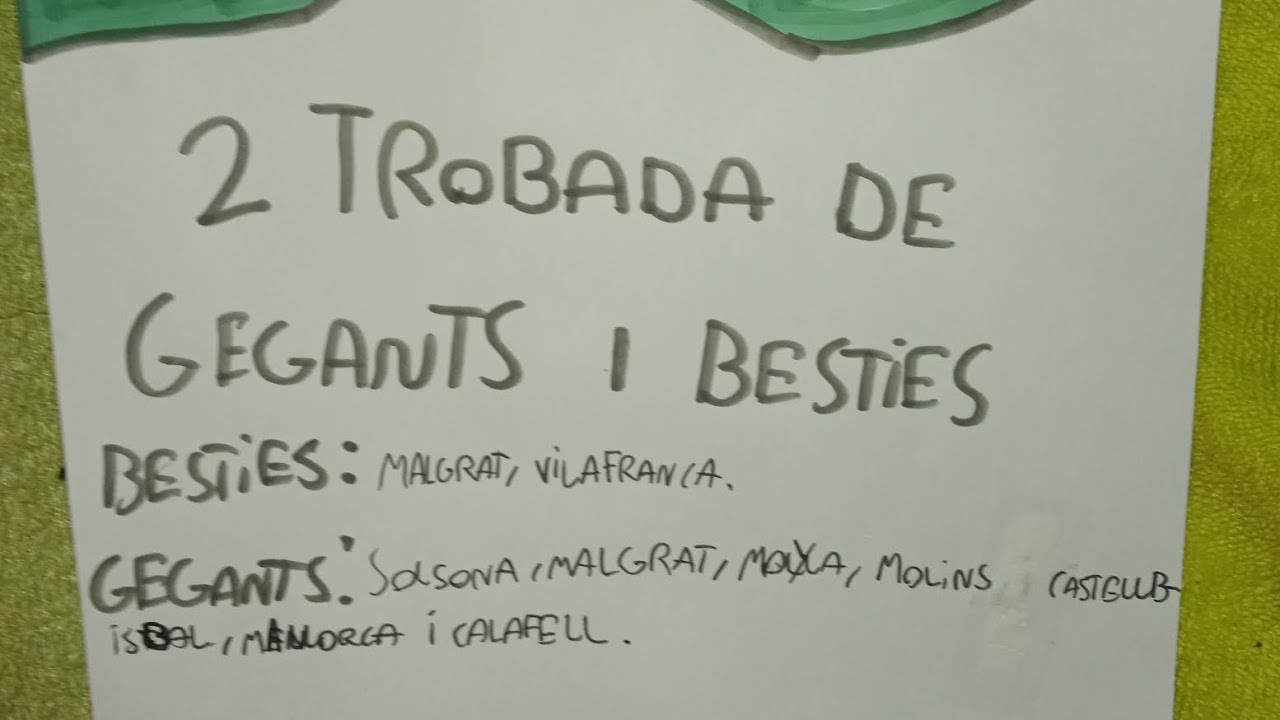 2 TROBADA DE
GEGANTS I BESTIES
BESTiES: MALGRAT, ViLAFRANCA.
GEGANTS: SOLSONA, MALGRAT, MOLiNS CASTELLB
iSBAL, MALLORCA i CALAFELL.